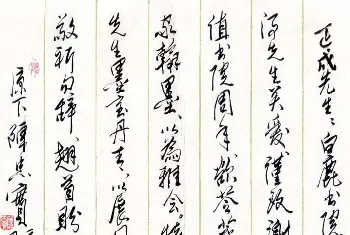 正成先生：白鹿书院
得先生关爱，谨致谢
值书院周年，欲荟萃
家翰墨，以为雅会。
先生墨宝丹青，以展
敬祈勿辞，翘首盼
原下 陈忠实